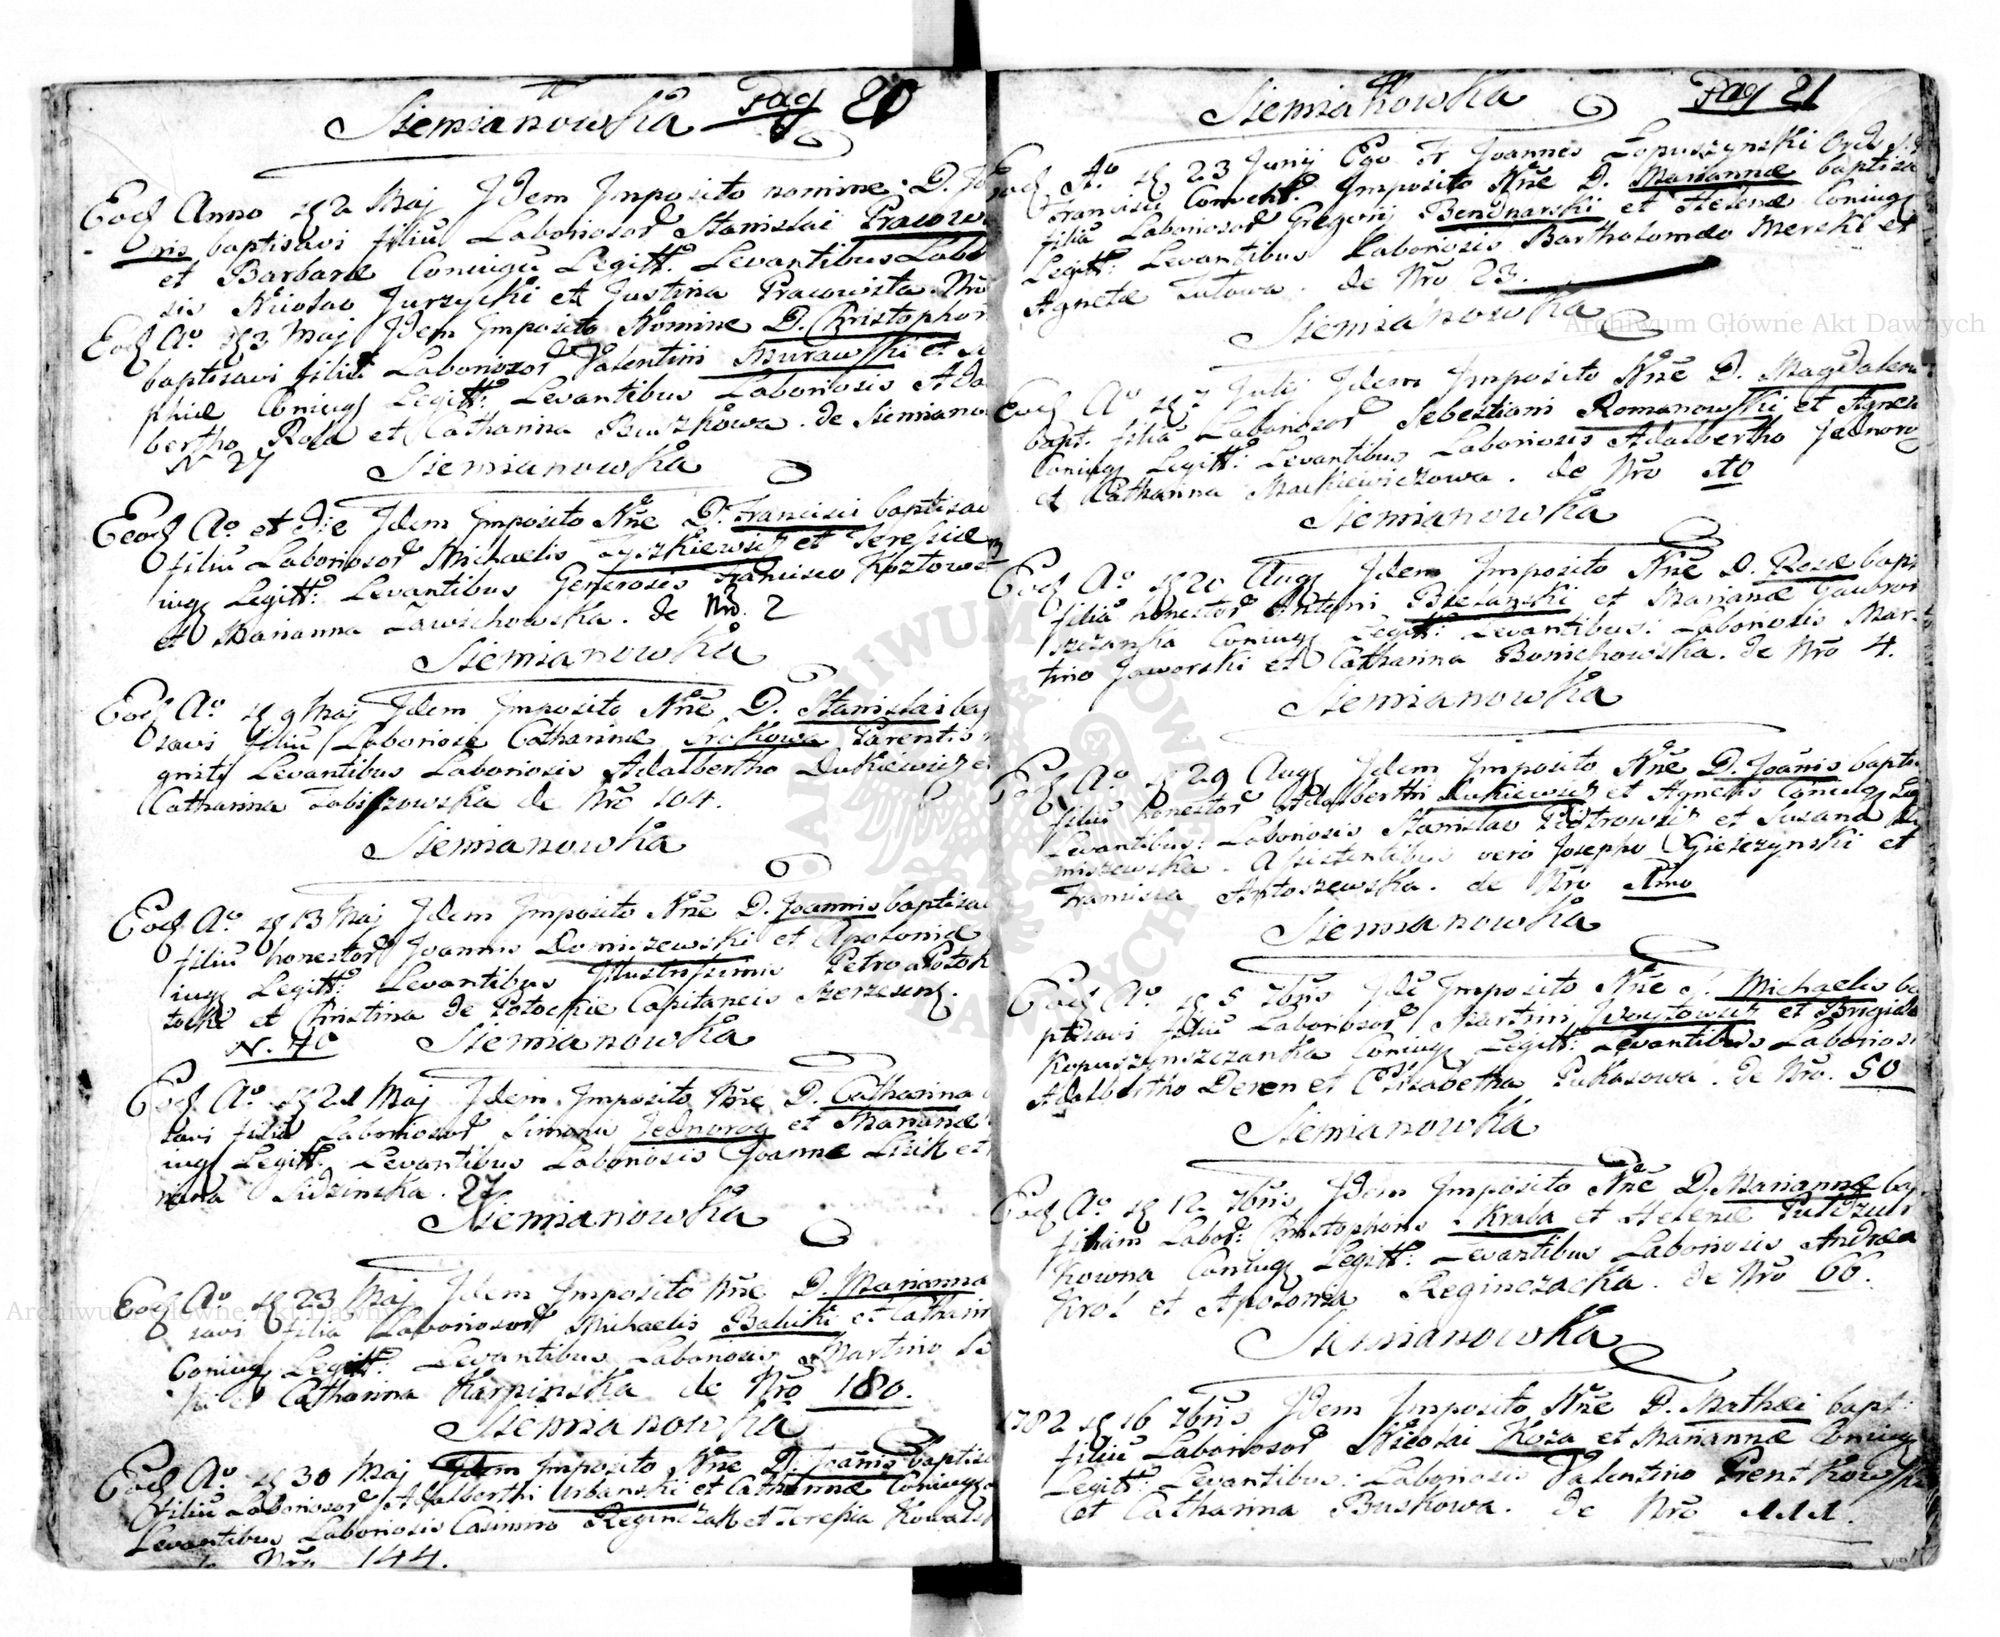 Siemianowka Pag 20
Eod Anno 2 Maj Idem Imposito nomine D. Jo
nis baptisavi filiu Laboriosor Stanislai Pracow
et Barbaræ Coniugu Legitt. Levantibus Labo
sis Nicolao Jurzycki et Justina Pracowska Nro
Eod Ao. 3 Maj Idem Imposito Nomine D. Christophori
baptisavi filiu Laboriosor Valentini Murawski et So
phiæ Coniug Legitt: Levantibus Laboriosis Adal
bertho Rola et Catharina Buszkowa. de Siemianow
N 27 Siemianowka
Eod Ao. et die Idem Imposito Nne D. Francisci baptisavi
filiu Laboriosor Michaelis Tyszkiewicz et Teresiæ
iug Legitt: Levantibus Generosis Francisco Koztows
et Marianna Zawichowska. de Nro. 2
Siemianowka
Eod Ao. 9 Maj Idem Imposito Nne D. Stanislai bap
savi filiu Laboriose Catharinæ Srokowa Parentis
gniti Levantibus Laboriosis Adalbertho Dukiewicz et
Catharina Tabiszowska de Nro 104.
Siemianowka
Eod Ao. 13 Maj Idem Imposito Nne D. Joannis baptisa
filiu honestor Joannis Domiszewski et Apolonia
iug Legitt: Levantibus Illustrissimis Petro Potok
tocki et Christina de Potockie Capitaneis Szerzescg.
N. 40 Siemianowka
Eod Ao. 21 Maj Idem Imposito Nne D. Catharina
savi filia Laboriosor Simonis Jednorog et Marianæ
iug Legitt. Levantibus Laboriosis Joanne Lisik et
riana Sidzinska. 27
Siemianowka
Eod Ao. 23 Maj Idem Imposito Nne D. Marianna
savi filia Laboriosor Michaelis Babicki et Catharin
Coniug Legitt: Levantibus Laboriosis Martino
et Catharina Karpinska de Nro 180.
Siemianowka
Eod Ao. 30 Maj Idem Imposito Nne D. Joanis baptisa
filiu Laboriosor Adalberthi Urbanski et Catharinæ Coniug
Levantibus Laboriosis Casimiro Reginczak et Teresia Kowals
de Nro 144.
Siemianowka Pag 21
Eod Ao. 23 Junij Ego Fr Joannes Lopuszynski Ord S.
Francisci Convent. Imposito Nne D. Mariannæ baptisa
filia Laboriosor Gregorij Bendnarski et Helenæ Coniug
Legitt: Levantibus Laboriosis Bartholomæo Merski et
Agnetæ Tutowa. de Nro 23.
Siemianowka
Eod Ao 7 Julij Idem Imposito Nne D. Magdalen
bapt. filia Laboriosor Sebestiani Romanowski et Agnet
Coniug Legitt: Levantibus Laboriosis Adalbertho Jednorog
et Catharina Mackiewiczowa. de Nro 10
Siemianowka
Eod Ao. 20 Aug Idem Imposito Nne D. Rosæ bapt
filia honestor Antoni Bielanski et Marianæ Jawror
szczanka Coniug Legitt: Levantibus: Laboriosis Mar-
tino Jaworski et Catharina Bonichowska. de Nro 4.
Siemianowka
Eod Ao. 29 Aug Idem Imposito Nne D. Joanis bapt
filiu honestor Adalberthi Dukiewicz et Agnetis Coniug Leg
Levantibus: Laboriosis Stanislao Piotrowski et Susana
miszewska. Assistentibus vero Josepho Gieszynski et
Francisca Antoszewska. de Nro 1mo
Siemianowka
Eod Ao. 5 7bris Ide Imposito Nne S. Michaelis ba
ptisavi filiu Laboriosor Martini Woytowicz et Brigida
Kopuszynszczanka Coniug Legitt: Levantibus Laborios
Adalbertho Deren et Elisabetha Pukasowa. de Nro. 50
Siemianowka
Eod Ao. 12 7bris Idem Imposito Nne D. Mariannæ bap
filiam Labor: Christophoris Skraba et Helenæ Putczui
kowna Coniug Legitt: Levantibus Laboriosis Andrea
Krol et Apolonia Reginczacka. de Nro 66.
Siemianowka
1782 16 7bris Idem Imposito Nne D. Mathæi bapt:
filiu Laboriosor Nicolai Koza et Mariannæ Coniug
Legitt: Levantibus: Laboriosis Valentino Prentkowski
et Catharina Buskowa. de Nro 111.
Archiwum Główne Akt Dawnych
Archiwum Główne Akt Dawnych
ARCHIWUM GŁÓWNE AKT DAWNYCH